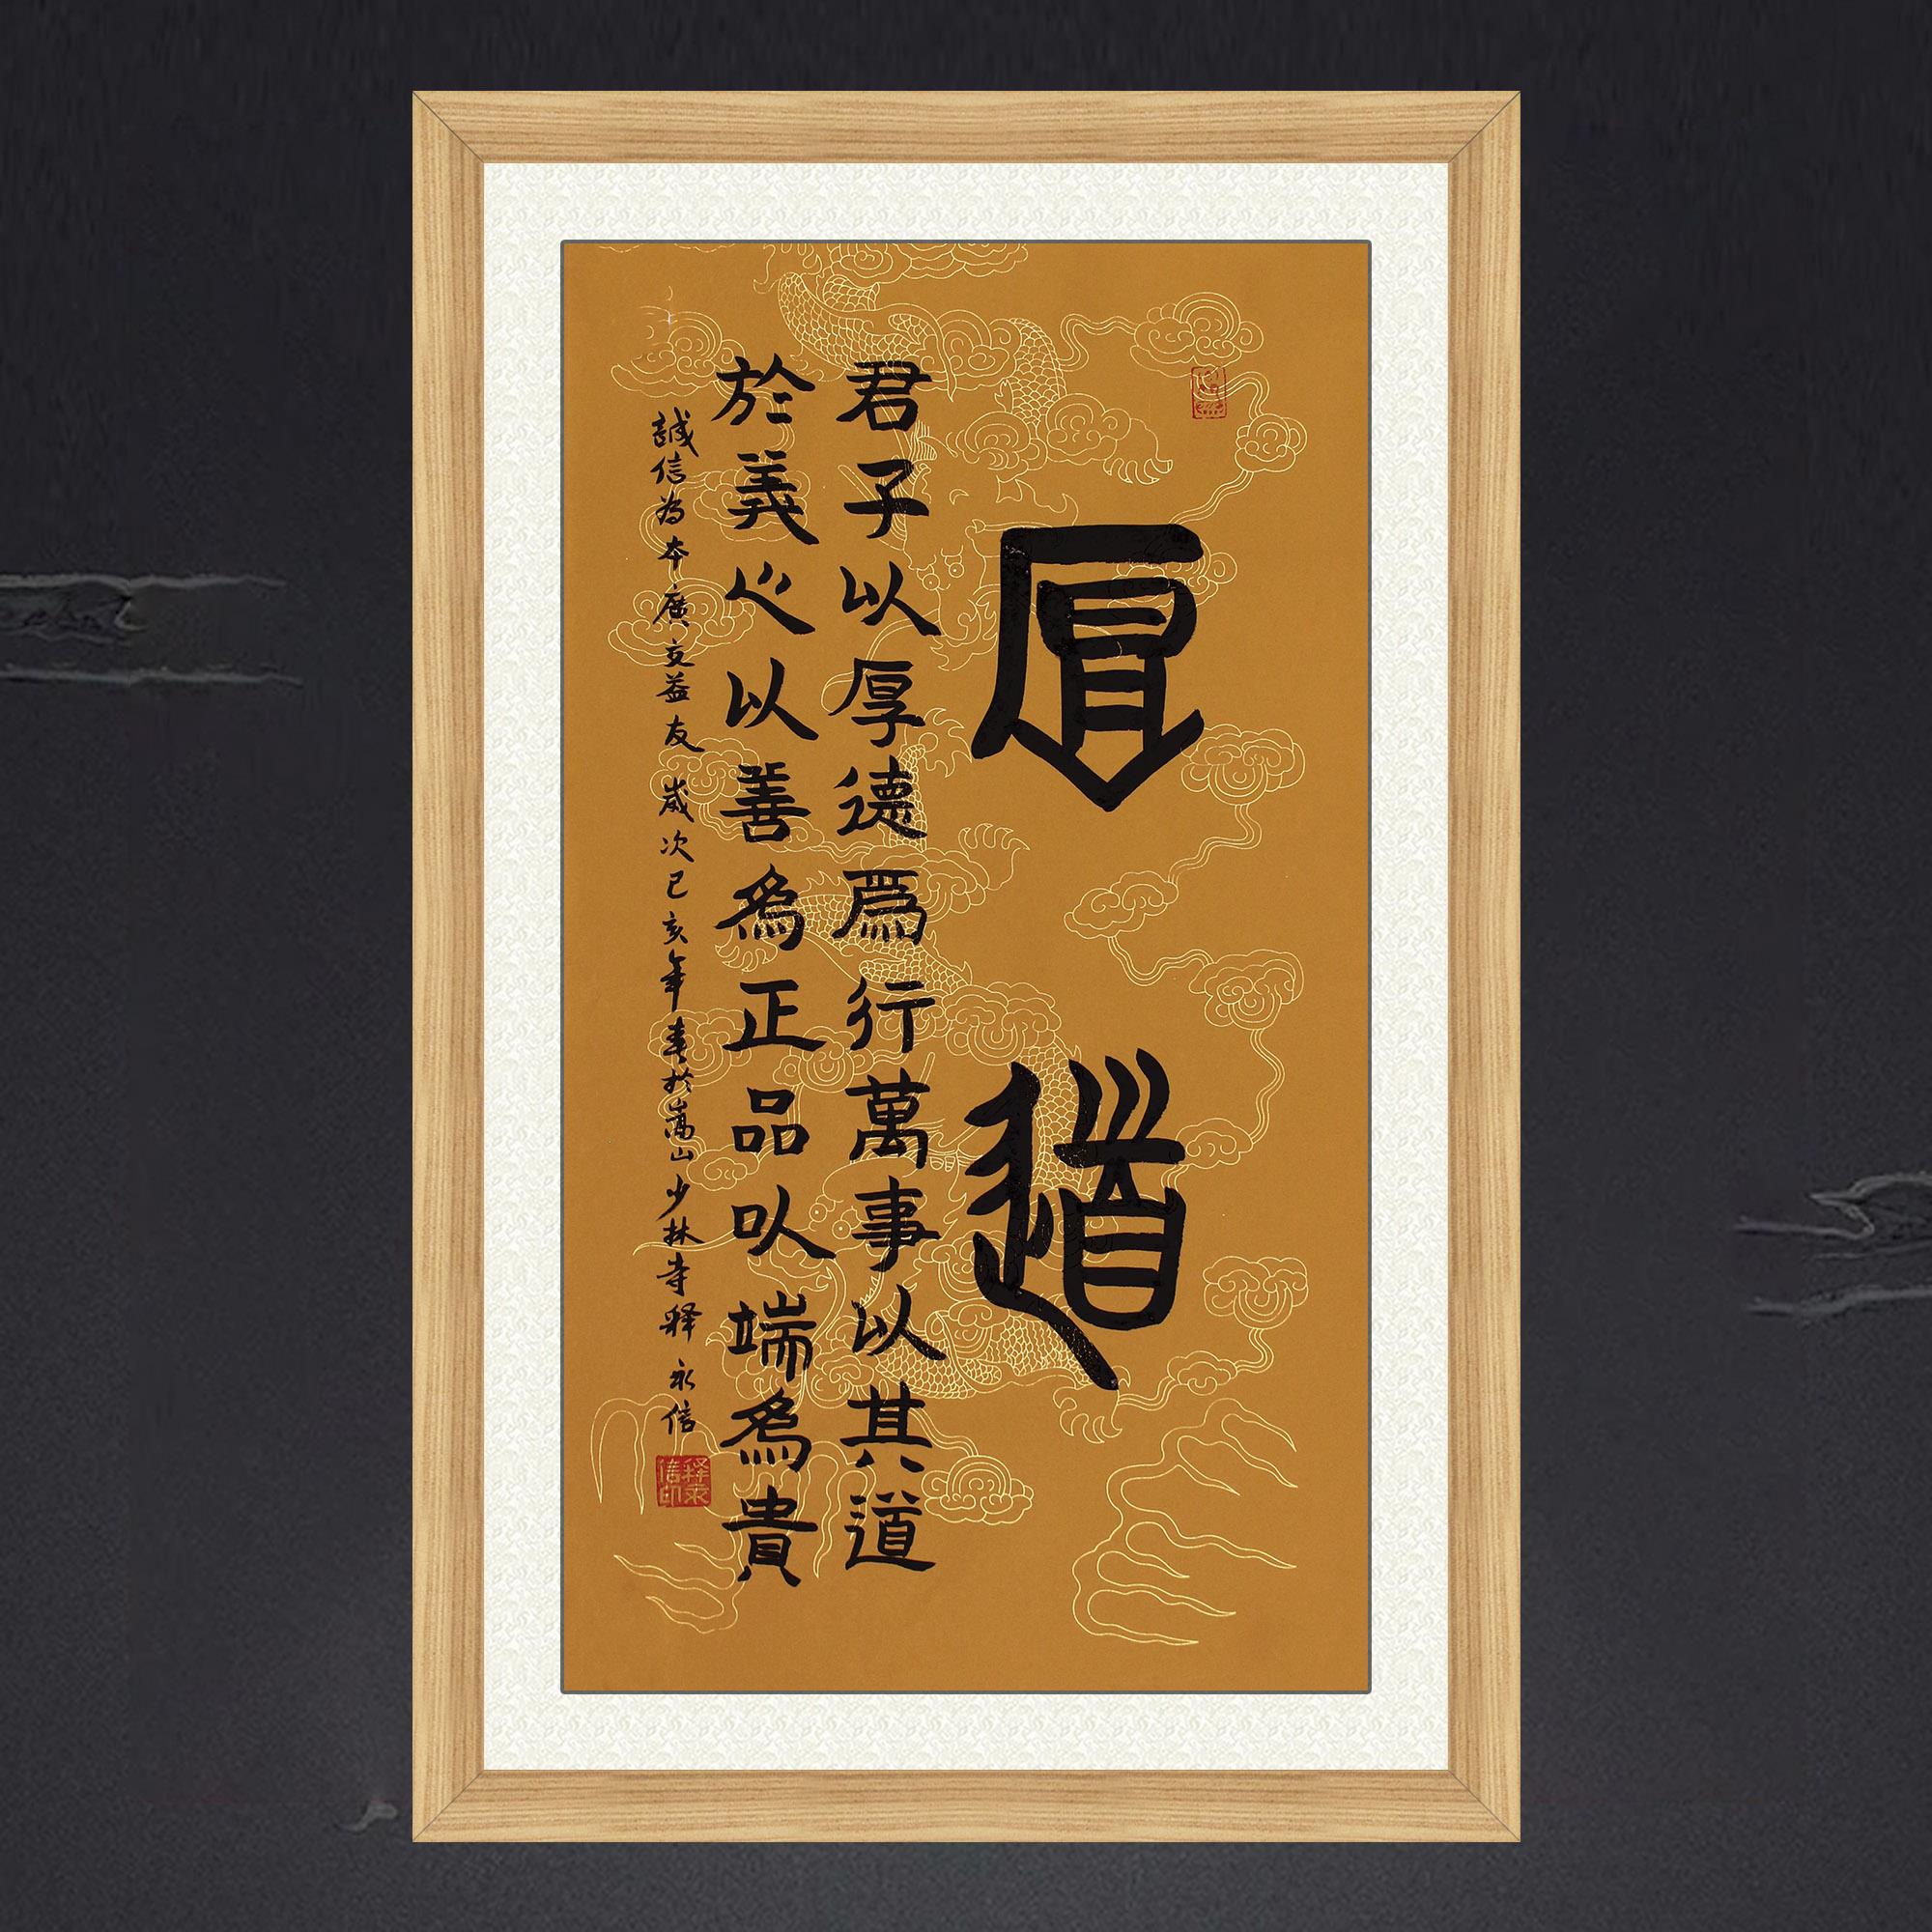 厚道
君子以厚德爲行萬事以其道
於義心以善爲正品以端爲貴
誠信為本廣交益友 歲次己亥年春於嵩山少林寺释永信
释永信印